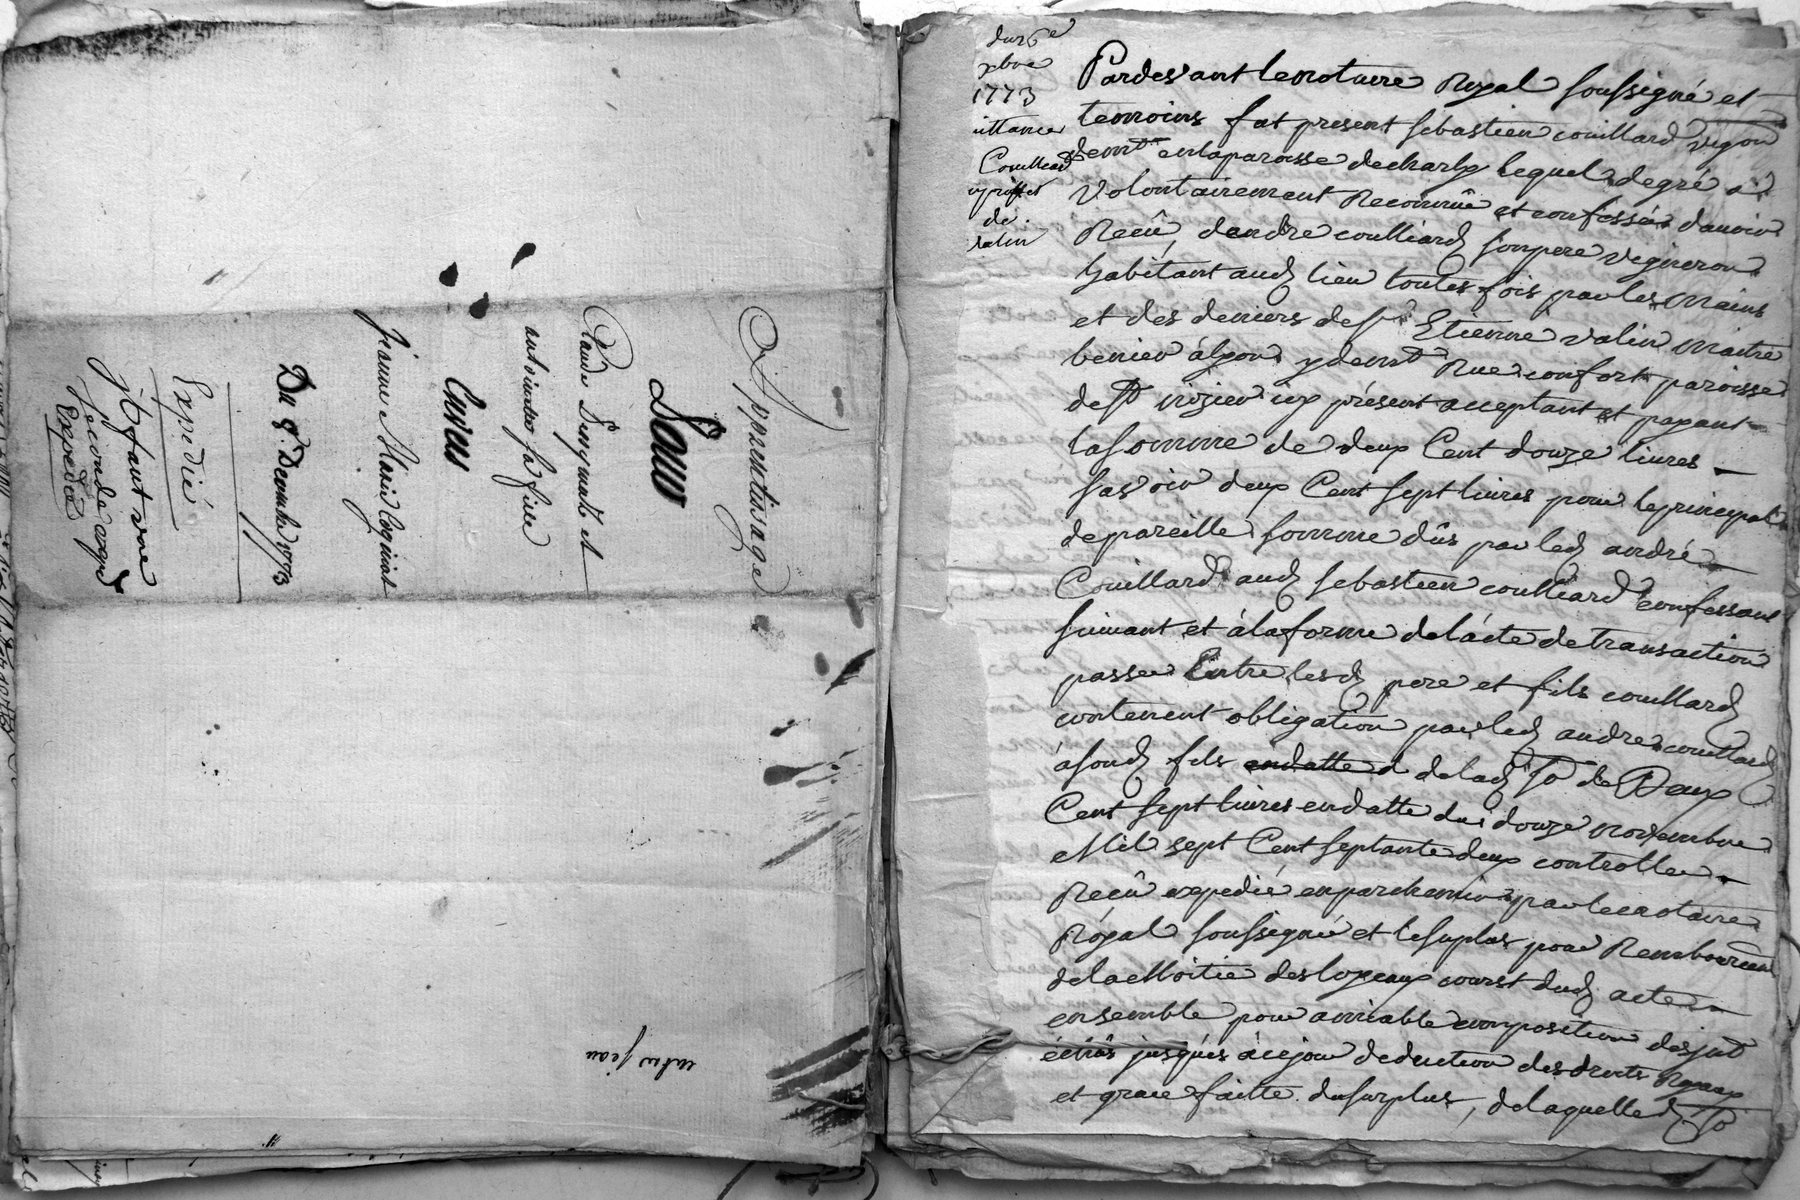 Aprentissage
Pour
Claude
antoinette sa fille
Jeanne Marie Coquinat
Du 8e. Decembre 1773
Expedié
jtt faut une
seconde expedn
Expediée
1773
Couillard
au proffit
de
valin
Pardevant le notaire Royal soussigné et
temoins fut present sebastien couillard vigon
demt. en la paroisse de charly lequel de gré a
volontairement Reconnû et confessée d'avoir
Recû d'andré couilliard son pere vigneron
habitant aud. lieu toutes fois par les mains
et des deniers de sr. Etienne valin maitre
à lyon y demt. Rue confort paroisse
de st nizier icy présent acceptant et payant
la somme de deux Cent douze livres
savoir deux Cent sept livres pour le principal
de pareille somme dûs par led. andré
Couillard aud. sebastien couilliard confessant
suivant et à la forme de l'acte de transaction
passée Entre lesd. pere et fils couillard
contenent obligation par led. andré couillard
à sond. fils en datte d de lad. so. de Deux
Cent sept livres en datte du douze novembre
Mil sept Cent septante deux controllée
Recû expedié en parchemin par le notaire
Róyal soussigné et le suplus pour Remboursemt
de la Moitié des loyeaux coust dud. acte
ensemble pour amiable composition des jnt.
échûs jusqués à ce jour deduction des droits Royaux
et grace faitte du surplus, de laquelle d. so.